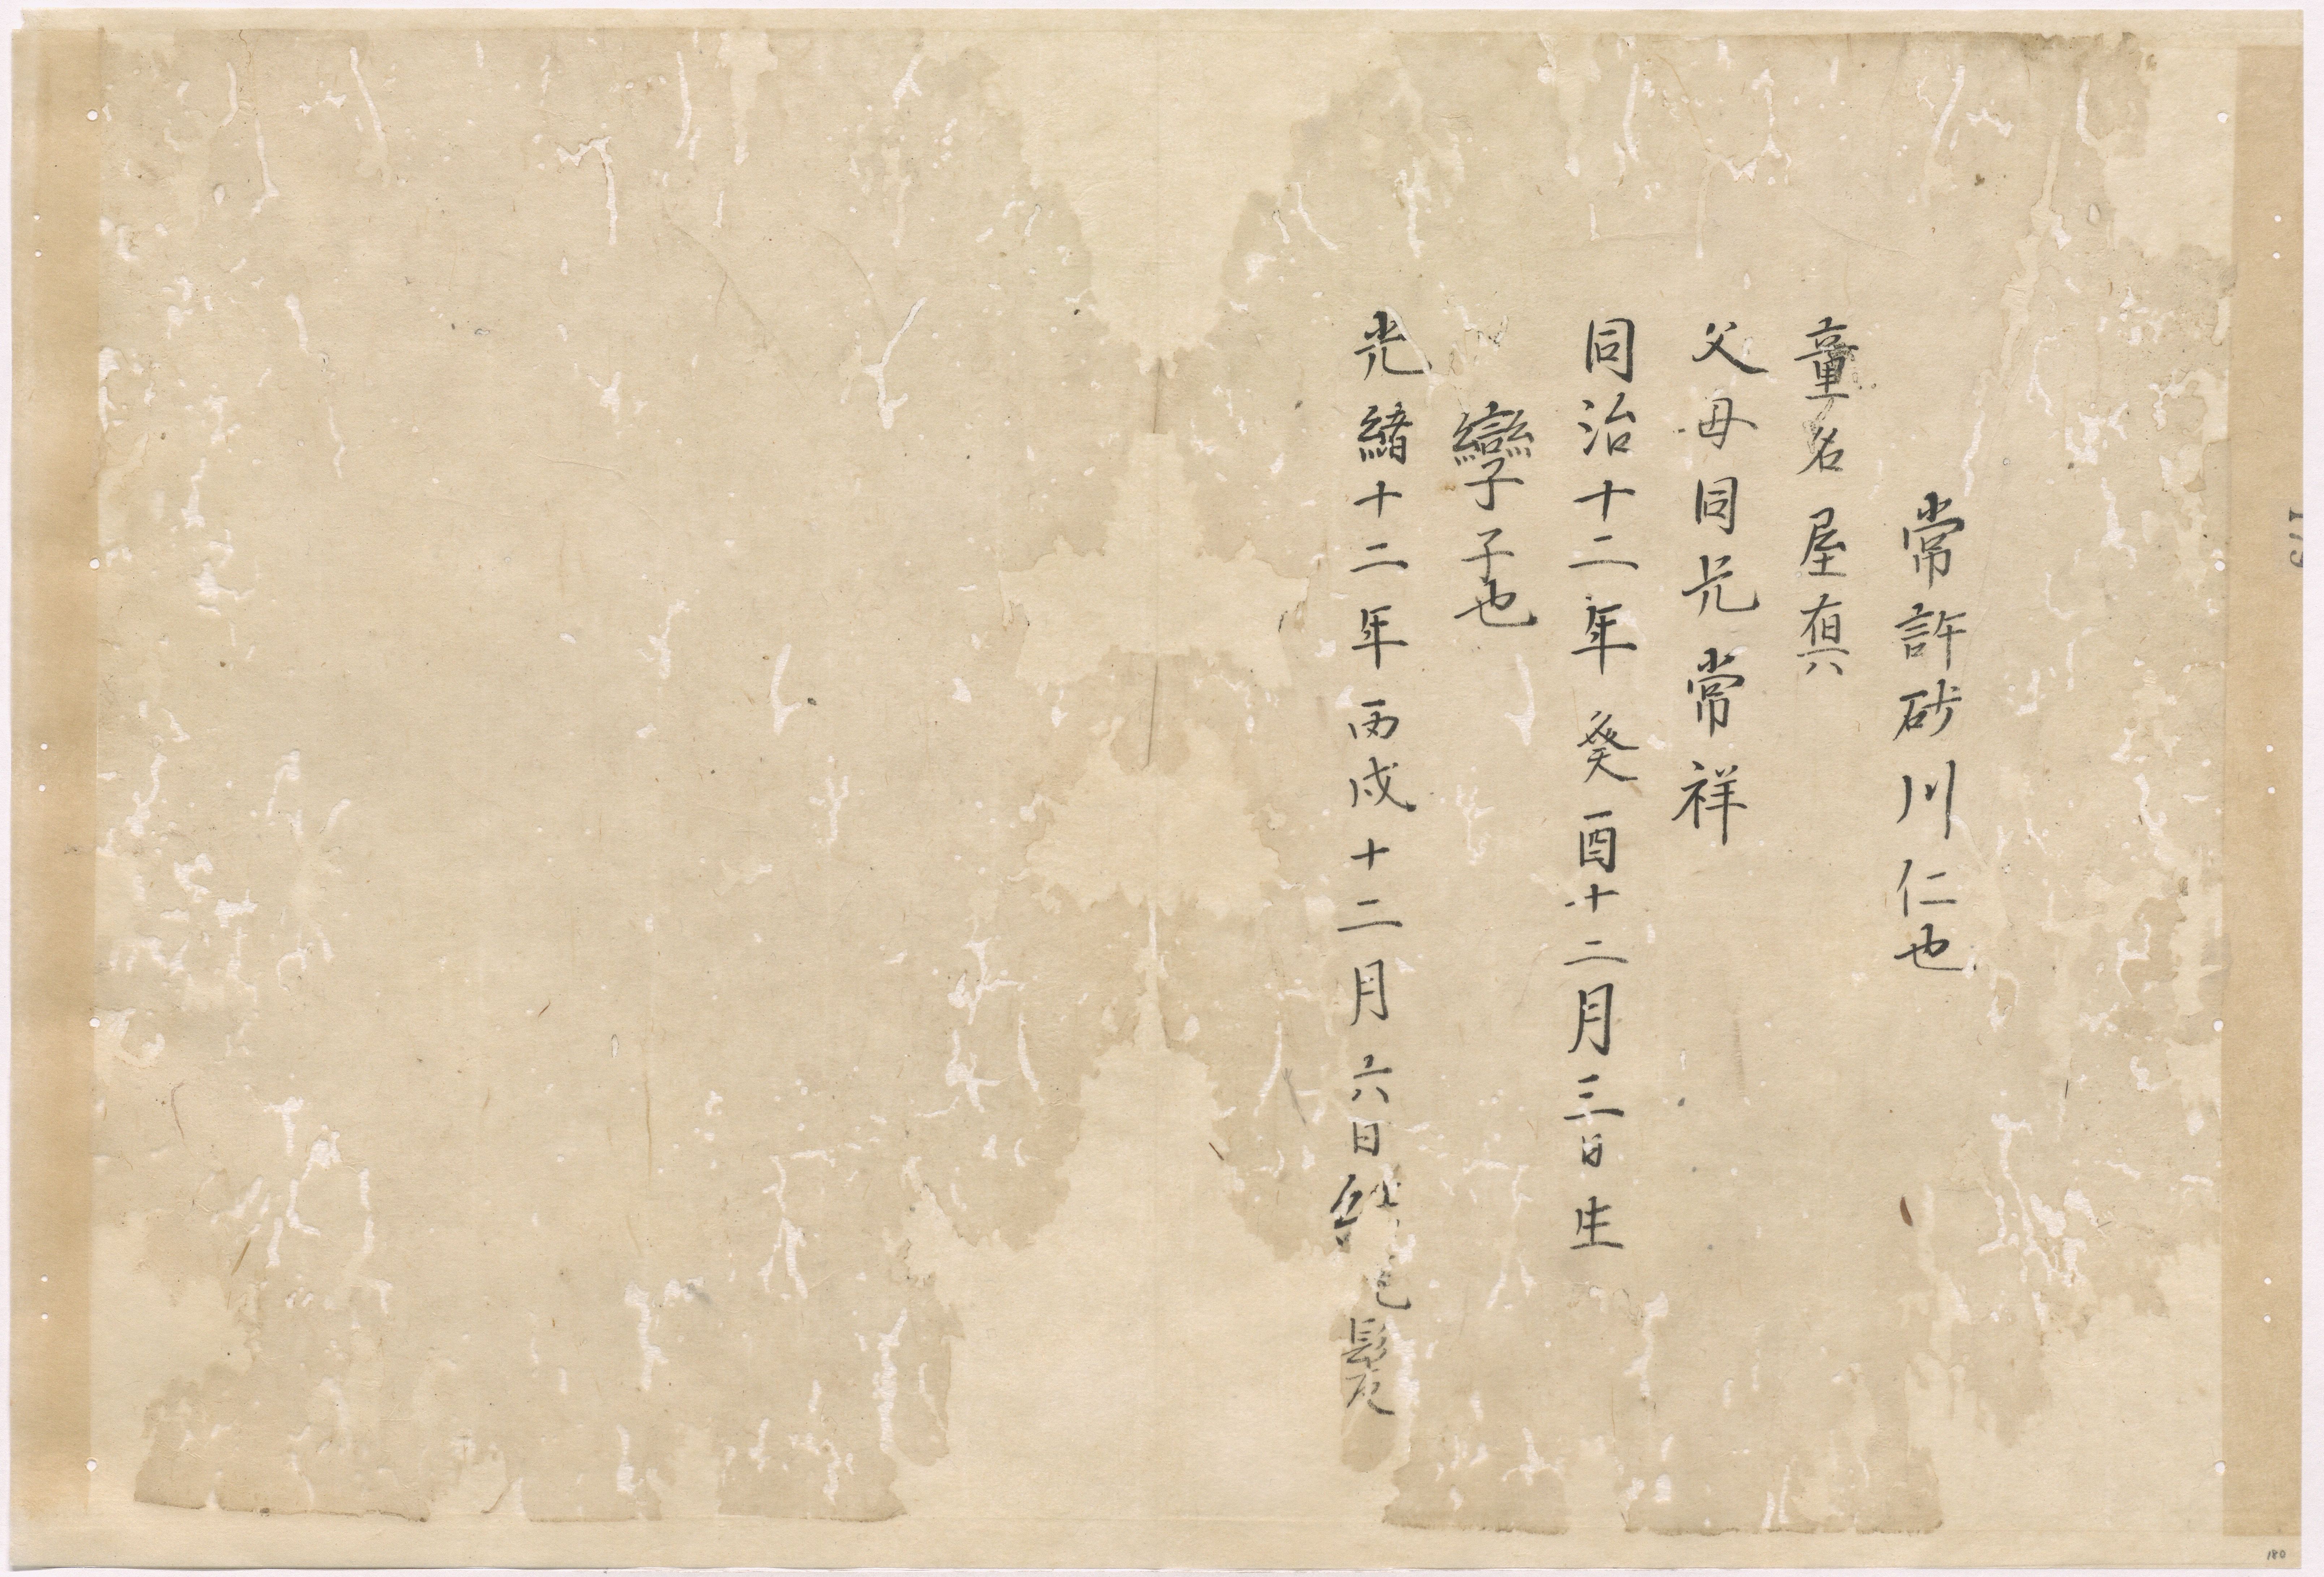 常許砂川仁也
童名屋真
父母同兄常祥
同治十二年癸酉十二月三日生
孿子也
光緒十二年丙戌十二月六日髪
180